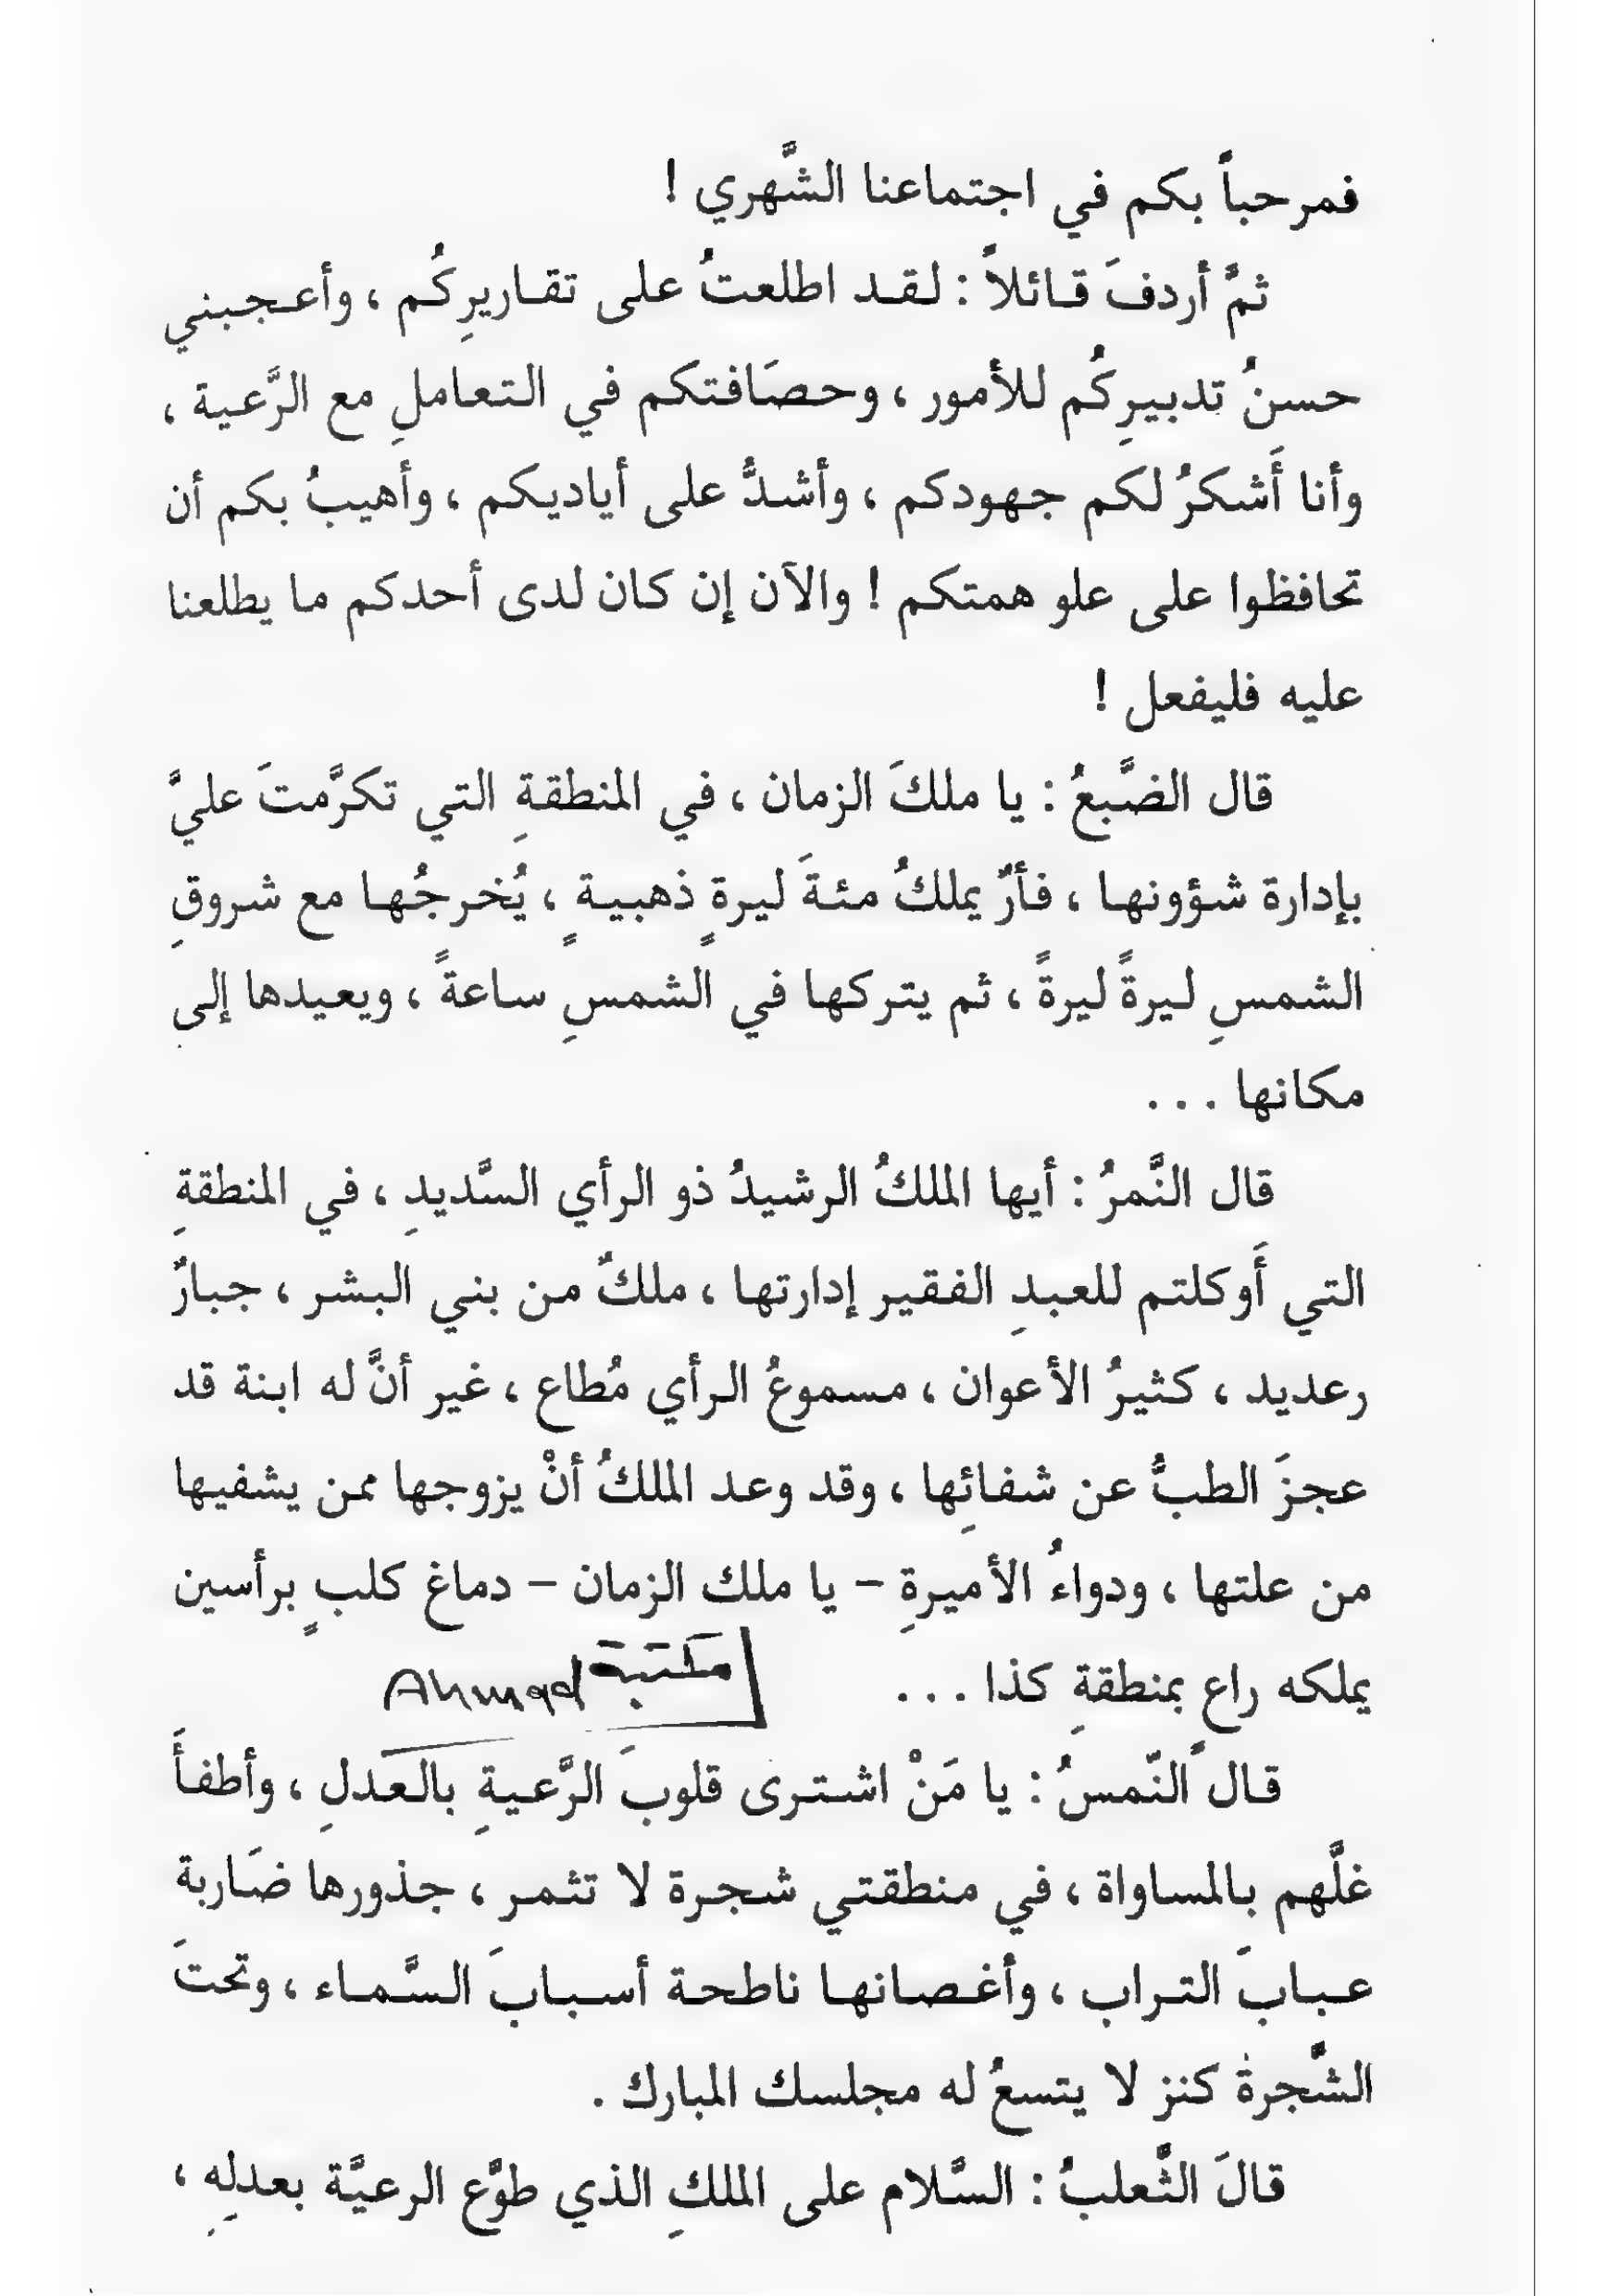 فمرحباً بكم في اجتماعنا الشَّهري !
ثمَّ أردفَ قائلاً : لقد اطلعتُ على تقاريرِكُم ، وأعجبني
حسنُ تدبيرِكُم للأمور ، وحصَافتكم في التعاملِ مع الرَّعية ،
وأنا أَشكرُ لكم جهودكم ، وأشدُّ على أياديكم ، وأهيبُ بكم أن
تحافظوا على علو همتكم ! والآن إن كان لدى أحدكم ما يطلعنا
عليه فليفعل !
قال الضَّبعُ : يا ملكَ الزمان ، في المنطقةِ التي تكرَّمتَ عليَّ
بإدارة شؤونها ، فأرٌ يملكُ مئةَ ليرةٍ ذهبيةٍ ، يُخرجُها مع شروقِ
الشمسِ ليرةً ليرةً ، ثم يتركها في الشمسِ ساعةً ، ويعيدها إلى
مكانها . . .
قال النَّمرُ : أيها الملكُ الرشيدُ ذو الرأي السَّديدِ ، في المنطقةِ
التي أَوكلتم للعبدِ الفقير إدارتها ، ملكٌ من بني البشر ، جبارٌ
رعديد ، كثيرُ الأعوان ، مسموعُ الرأي مُطاع ، غير أنَّ له ابنة قد
عجزَ الطبُّ عن شفائِها ، وقد وعد الملكُ أنْ يزوجها ممن يشفيها
من علتها ، ودواءُ الأميرةِ – يا ملك الزمان – دماغ كلبٍ برأسين
يملكه راعٍ بمنطقةِ كذا . . . مكتبة Ahmad
قال النّمسُ : يا مَنْ اشترى قلوبَ الرَّعيةِ بالعدلِ ، وأطفأَ
غلَّهم بالمساواة ، في منطقتي شجرة لا تثمر ، جذورها ضَاربة
عبابَ التراب ، وأغصانها ناطحة أسبابَ السَّماء ، وتحتَ
الشَّجرة كنز لا يتسعُ له مجلسك المبارك .
قالَ الثَّعلبُ : السَّلام على الملكِ الذي طوَّع الرعيَّة بعدلِهِ ،